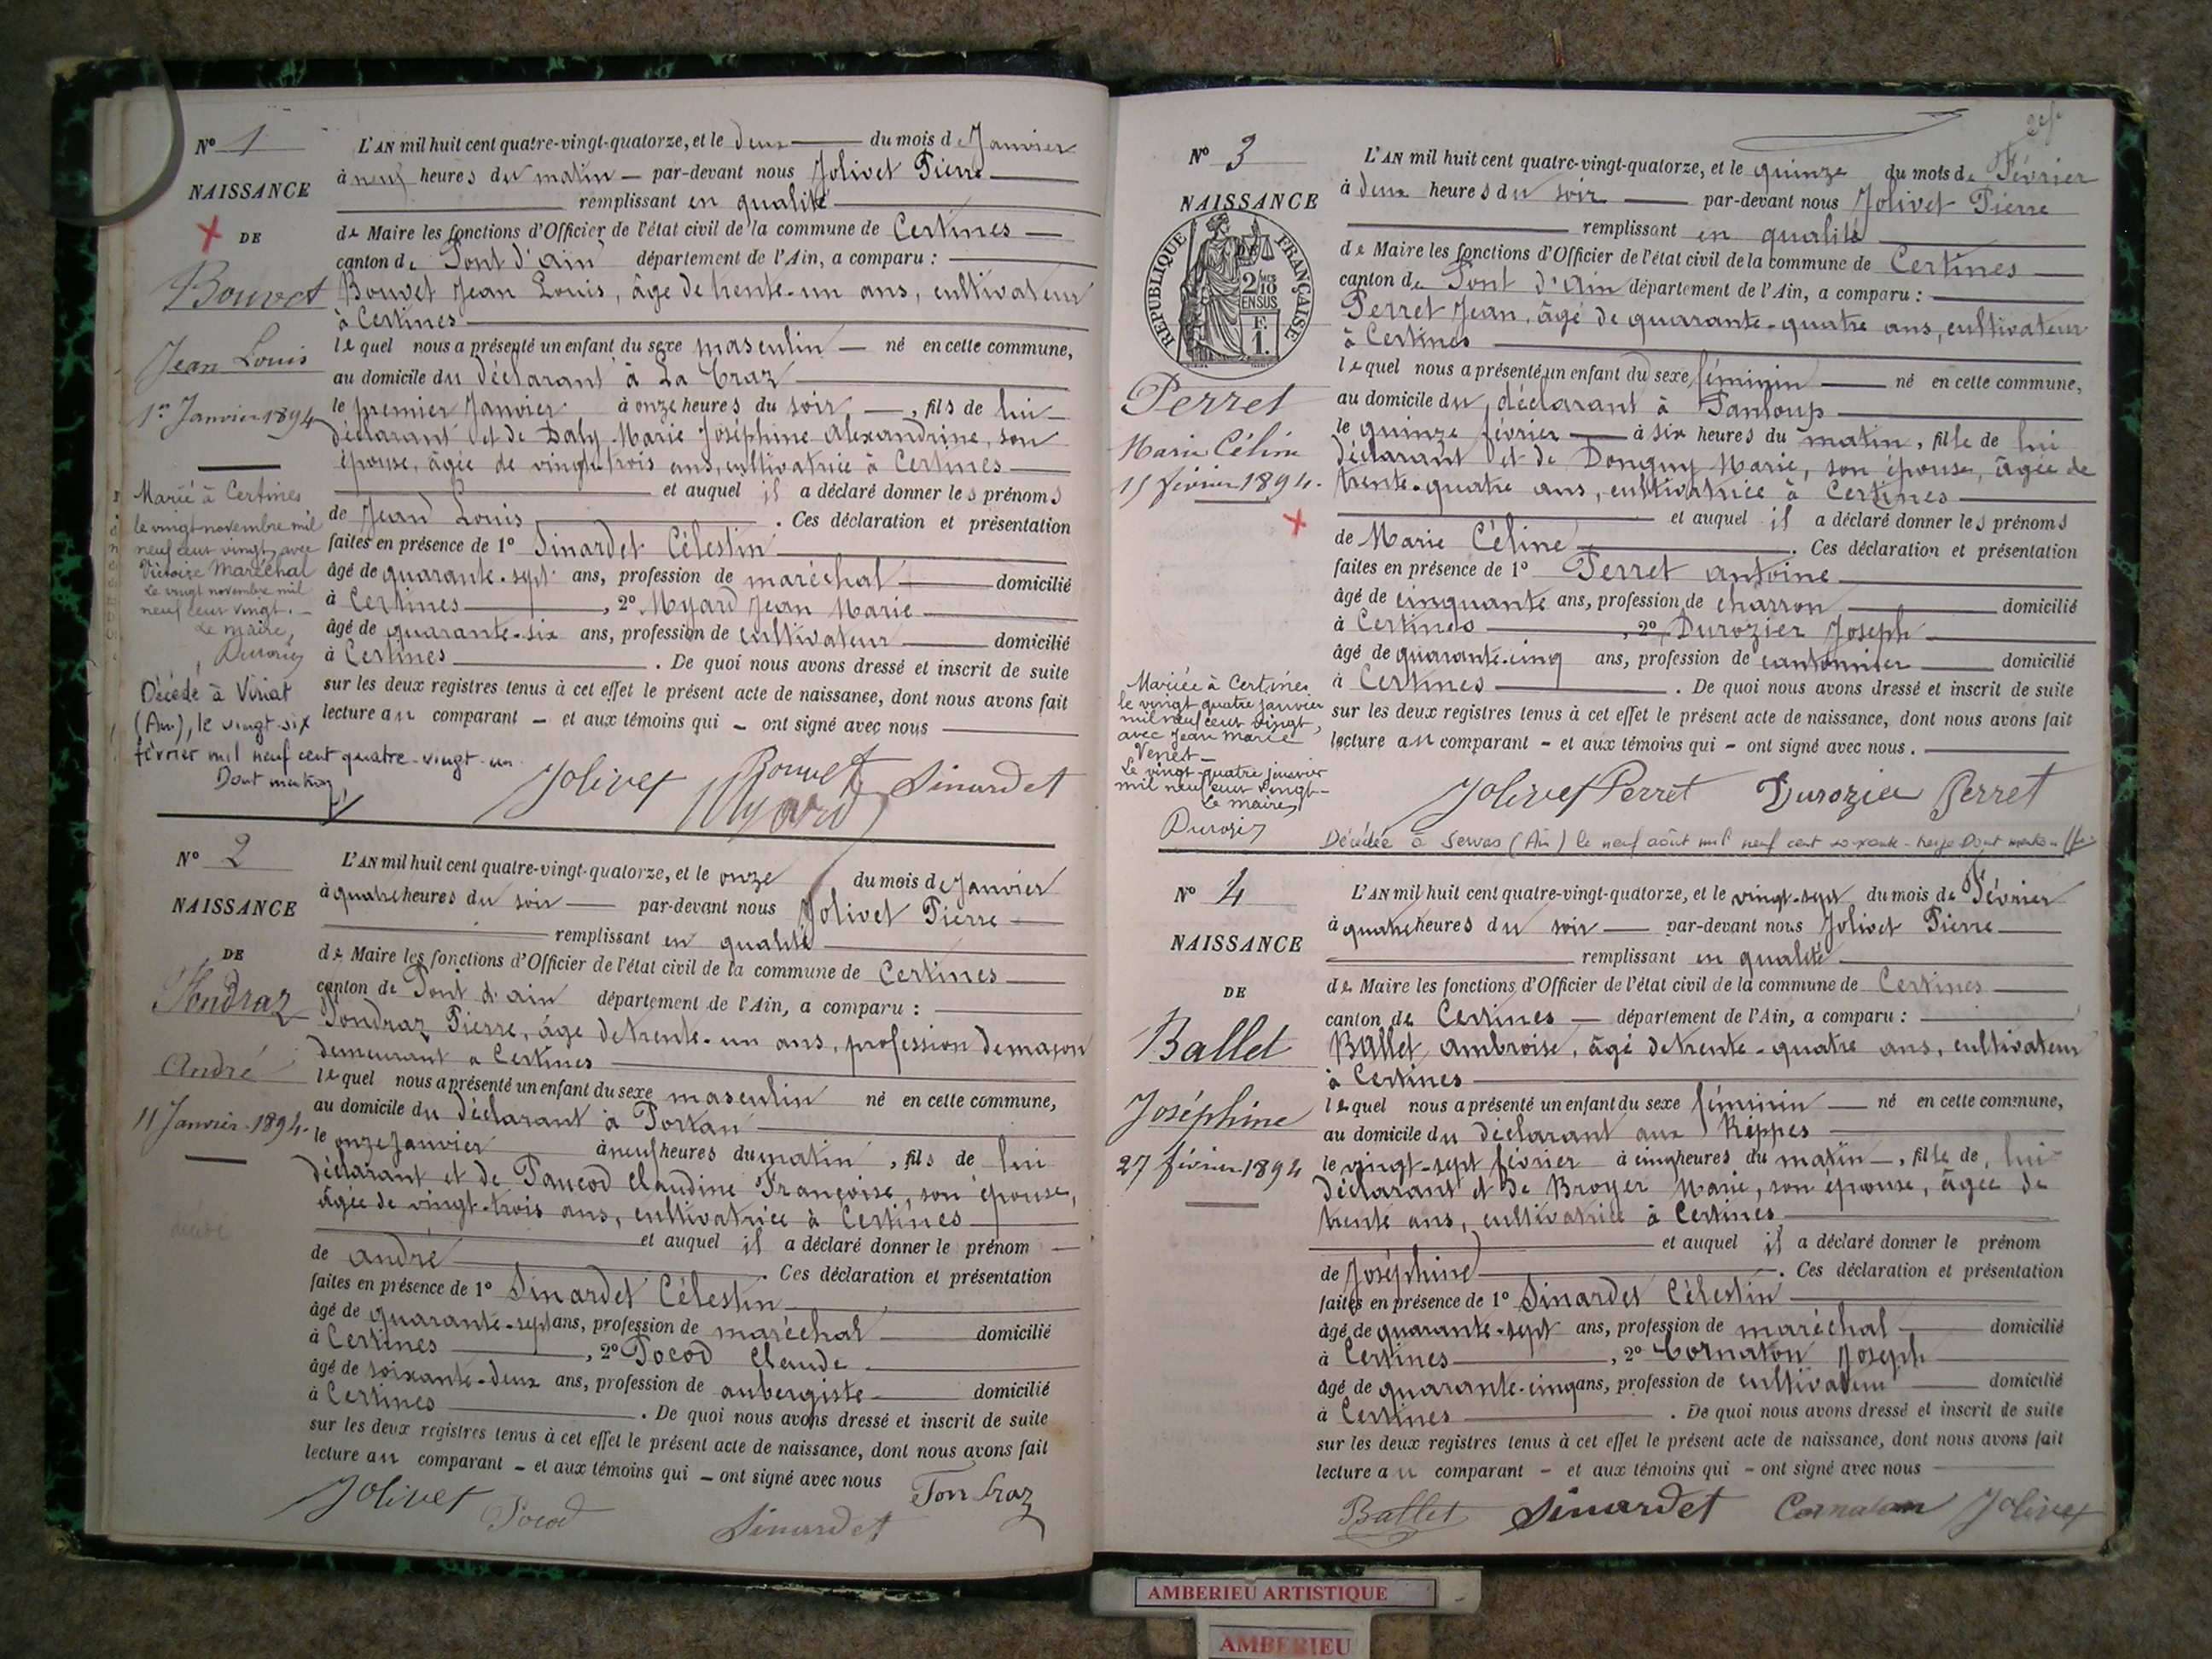 Nº 1
NAISSANCE
DE
Bouvet
Jean Louis
1er Janvier 1894
Marié à Certines
le vingt novembre mil
neuf cent vingt, avec
Victoire Maréchal
Le vingt novembre mil
neuf cent vingt. _
Le maire,
Décédé à Viriat
(Ain), le vingt-six
février mil neuf cent quatre-vingt-un
Dont mention
L'AN mil huit cent quatre-vingt-quatorze, et le deux du mois de Janvier
à neuf heures du matin par-devant nous Jolivet Pierre
remplissant en qualité
de Maire les fonctions d'Officier de l'état civil de la commune de Certines
canton de Pont d'Ain département de l'Ain, a comparu :
Bouvet Jean Louis, âgé de trente-un ans, cultivateur
à Certines
lequel nous a présenté un enfant du sexe masculin né en cette commune,
au domicile du déclarant à La Craz
le premier Janvier à onze heures du soir, fils de lui
déclarant et de Daly Marie Joséphine Alexandrine, son
épouse, âgée de vingt-trois ans, cultivatrice à Certines
et auquel il a déclaré donner les prénoms
de Jean Louis . Ces déclaration et présentation
faites en présence de 1º Sinardet Célestin
âgé de quarante-sept ans, profession de maréchal domicilié
à Certines , 2º Myard Jean Marie
âgé de quarante-six ans, profession de cultivateur domicilié
à Certines . De quoi nous avons dressé et inscrit de suite
sur les deux registres tenus à cet effet le présent acte de naissance, dont nous avons fait
lecture au comparant - et aux témoins qui - ont signé avec nous
Jolivet Bouvet Sinardet
Myard
Nº 2
NAISSANCE
DE
Tondraz
André
11 Janvier 1894.
L'AN mil huit cent quatre-vingt-quatorze, et le onze du mois de Janvier
à quatre heures du soir par-devant nous Jolivet Pierre
remplissant en qualité
de Maire les fonctions d'Officier de l'état civil de la commune de Certines
canton de Pont d'ain département de l'Ain, a comparu :
Tondraz Pierre, âgé de trente-un ans, profession de maçon
demeurant à Certines
lequel nous a présenté un enfant du sexe masculin né en cette commune,
au domicile du déclarant à Portan
le onze Janvier à neuf heures du matin, fils de lui
déclarant et de Paucod Claudine Françoise, son épouse,
âgée de vingt-trois ans, cultivatrice à Certines
et auquel il a déclaré donner le prénom
de André . Ces déclaration et présentation
faites en présence de 1º Sinardet Célestin
âgé de quarante-sept ans, profession de maréchal domicilié
à Certines , 2º Pocod Claude
âgé de soixante-deux ans, profession de aubergiste domicilié
à Certines . De quoi nous avons dressé et inscrit de suite
sur les deux registres tenus à cet effet le présent acte de naissance, dont nous avons fait
lecture au comparant - et aux témoins qui - ont signé avec nous
Jolivet Pocod Sinardet Tondraz
Nº 3
NAISSANCE
DE
REPUBLIQUE FRANÇAISE
2/10
EN SUS
F.
1.
Perret
Marie Céline
15 février 1894.
Mariée à Certines
le vingt quatre janvier
mil neuf cent vingt,
avec Jean Marie
Venet _
Le vingt-quatre janvier
mil neuf cent vingt _
Le maire,
L'AN mil huit cent quatre-vingt-quatorze, et le quinze du mois de Février
à deux heures du soir par-devant nous Jolivet Pierre
remplissant en qualité
de Maire les fonctions d'Officier de l'état civil de la commune de Certines
canton de Pont d'Ain département de l'Ain, a comparu :
Perret Jean, âgé de quarante-quatre ans, cultivateur
à Certines
lequel nous a présenté un enfant du sexe féminin né en cette commune,
au domicile du déclarant à Panloup
le quinze février à six heures du matin, fille de lui
déclarant et de Donguy Marie, son épouse, âgée de
trente-quatre ans, cultivatrice à Certines
et auquel il a déclaré donner les prénoms
de Marie Céline . Ces déclaration et présentation
faites en présence de 1º Perret Antoine
âgé de cinquante ans, profession de charron domicilié
à Certines , 2º Durozier Joseph
âgé de quarante-cinq ans, profession de cantonnier domicilié
à Certines . De quoi nous avons dressé et inscrit de suite
sur les deux registres tenus à cet effet le présent acte de naissance, dont nous avons fait
lecture au comparant - et aux témoins qui - ont signé avec nous.
Jolivet Perret Durozier Perret
Décédée à Servas (Ain) le neuf août mil neuf cent soixante-treize Dont mention
Nº 4
NAISSANCE
DE
Ballet
Joséphine
27 février 1894
L'AN mil huit cent quatre-vingt-quatorze, et le vingt-sept du mois de Février
à quatre heures du soir par-devant nous Jolivet Pierre
remplissant en qualité
de Maire les fonctions d'Officier de l'état civil de la commune de Certines
canton de Certines département de l'Ain, a comparu :
Ballet Ambroise, âgé de trente-quatre ans, cultivateur
à Certines
lequel nous a présenté un enfant du sexe féminin né en cette commune,
au domicile du déclarant aux Rippes
le vingt-sept février à cinq heures du matin, fille de lui
déclarant et de Broyer Marie, son épouse, âgée de
trente ans, cultivatrice à Certines
et auquel il a déclaré donner le prénom
de Joséphine . Ces déclaration et présentation
faites en présence de 1º Sinardet Célestin
âgé de quarante-sept ans, profession de maréchal domicilié
à Certines , 2º Cornaton Joseph
âgé de quarante-cinq ans, profession de cultivateur domicilié
à Certines . De quoi nous avons dressé et inscrit de suite
sur les deux registres tenus à cet effet le présent acte de naissance, dont nous avons fait
lecture au comparant - et aux témoins qui - ont signé avec nous
Ballet Sinardet Cornaton Jolivet
AMBERIEU ARTISTIQUE
AMBERIEU